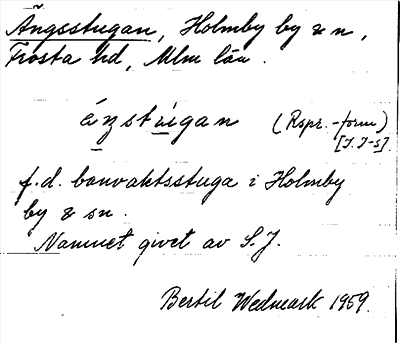 Ängsstugan, Holmby by & sn,
Frosta hd, Mlm län.
ä́ŋstùgan (Rspr.-form)
[I. J-s].
f.d. banvaktsstuga i Holmby
by & sn.
Namnet givet av S.J.
Bertil Wedmark 1959.